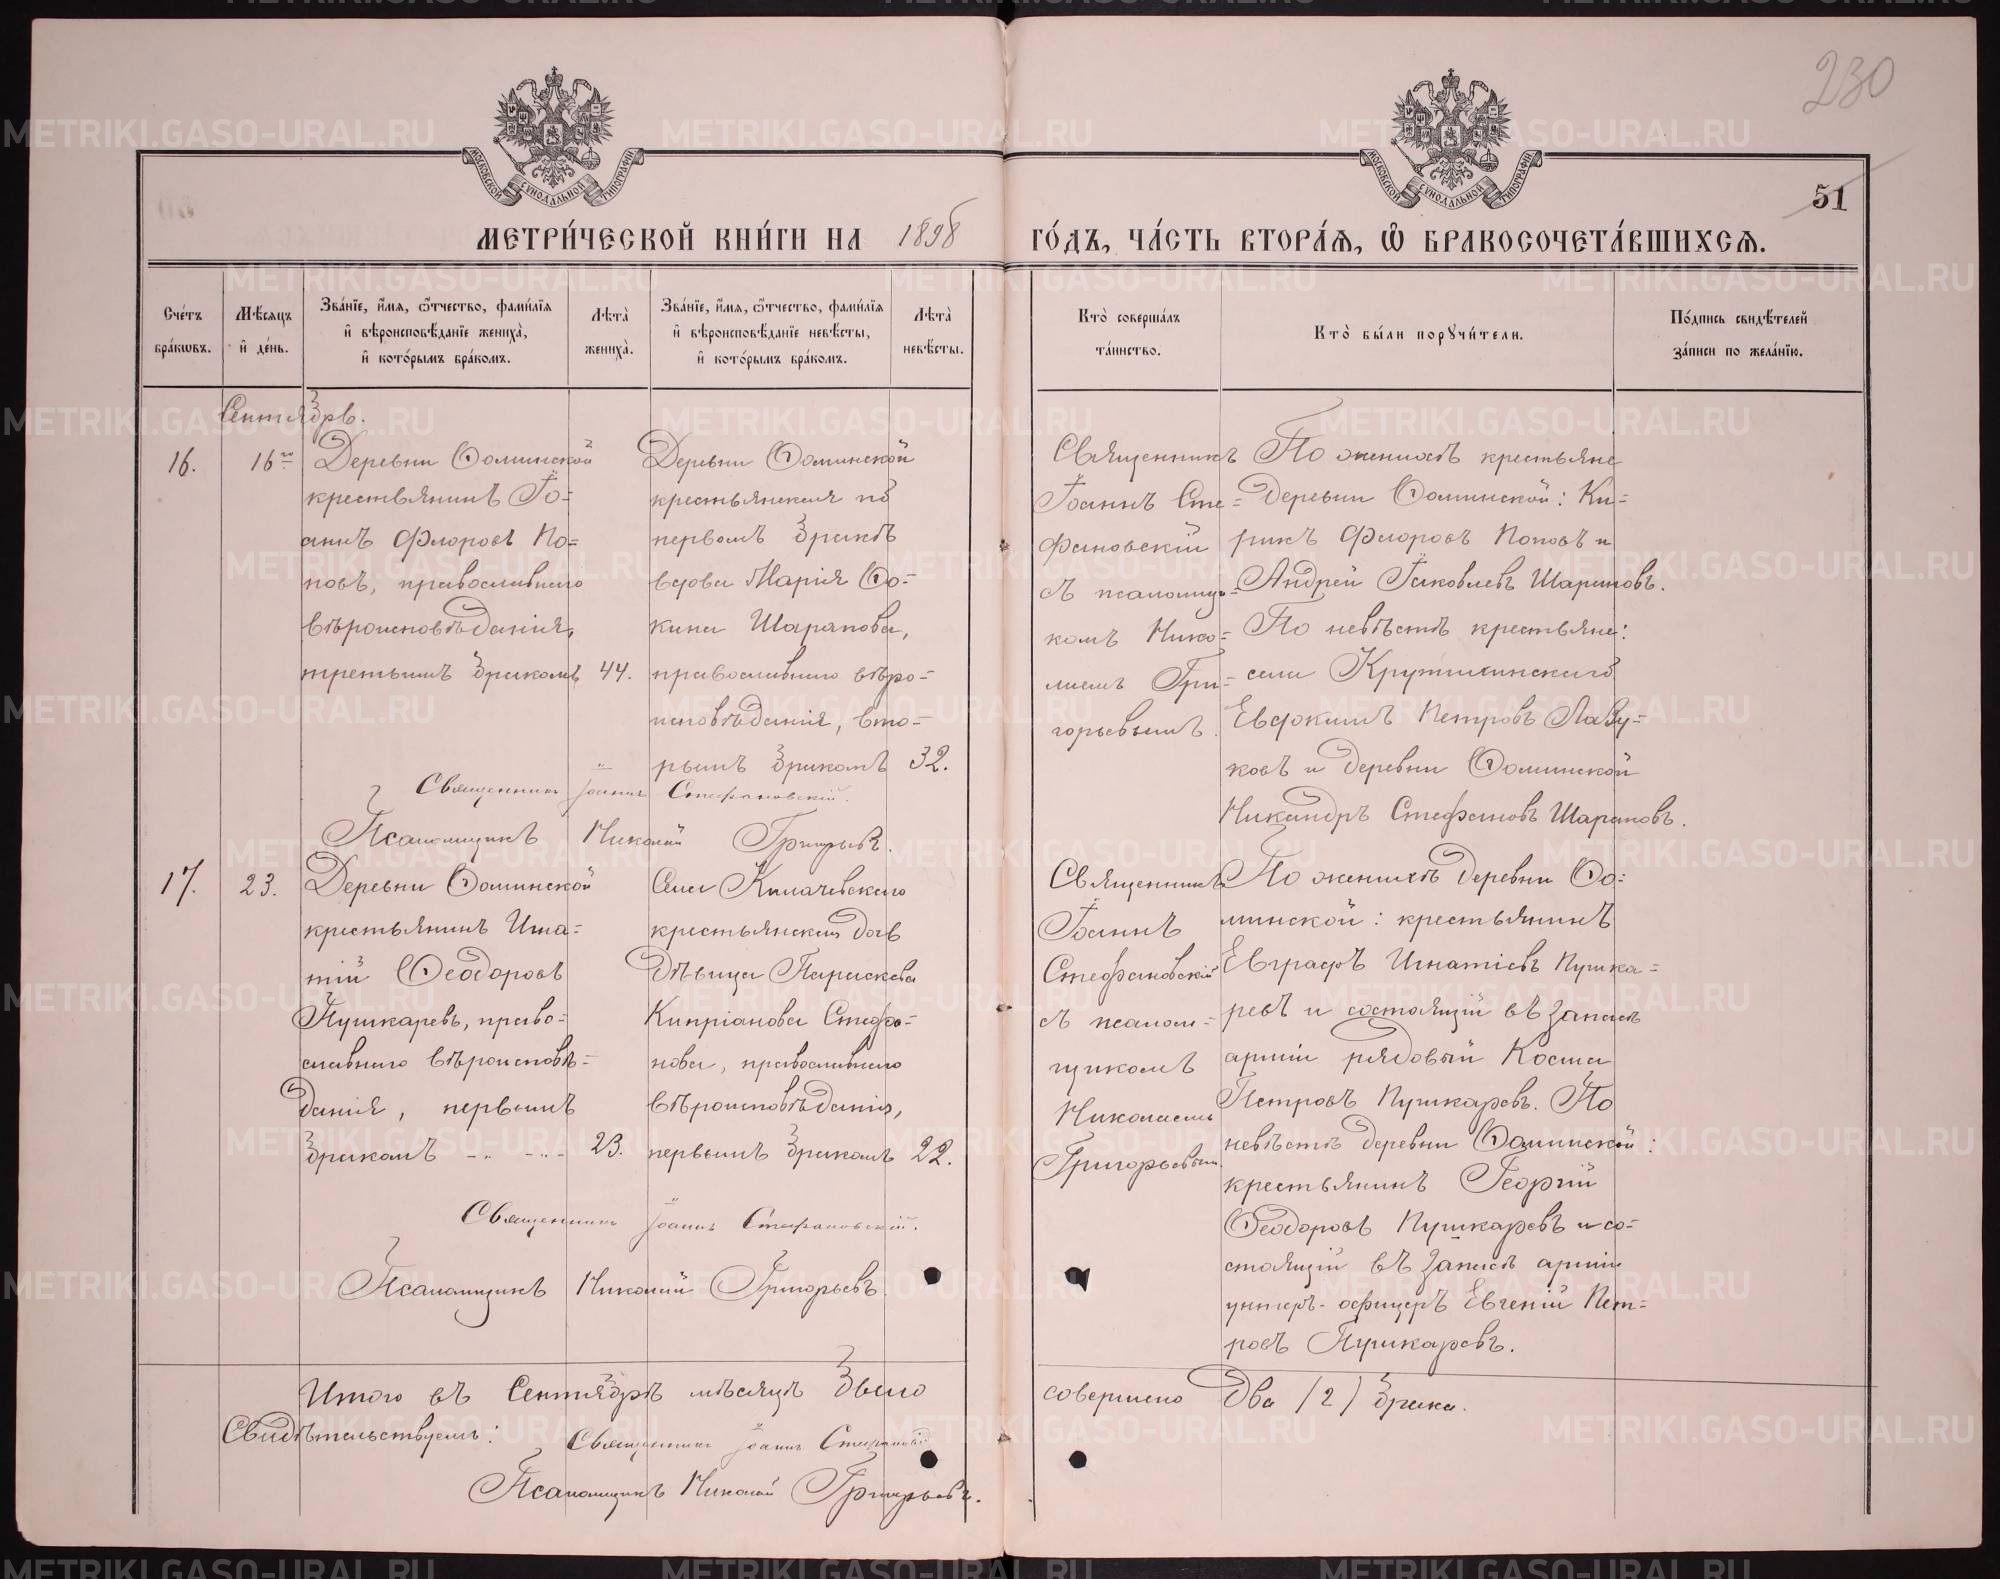 230
МОСКОВСКОЙ СѴНОДАЛЬНОЙ ТИПОГРАФІИ
МОСКОВСКОЙ СѴНОДАЛЬНОЙ ТИПОГРАФІИ
51
МЕТРИ́ЧЕСКОЙ КНИ́ГИ НА 1898 ГО́ДЪ, ЧА́СТЬ ВТОРА́Я, Ѡ БРАКОСОЧЕТА́ВШИХСЯ.
Сче́тъ бра́кѡвъ.
Мѣ́сяцъ и҆ де́нь.
Зва́нїе, и҆́мя, ѻ҆́тчество, фами́лїя и҆ вѣроисповѣ́данїе жениха̀, и҆ кото́рымъ бра́комъ.
Лѣта̀ жениха̀.
Зва́нїе, и҆́мя, ѻ҆́тчество, фами́лїя и҆ вѣроисповѣ́данїе невѣ́сты, и҆ кото́рымъ бра́комъ.
Лѣта̀ невѣ́сты.
Кто̀ соверша́лъ та́инство.
Кто̀ бы́ли порꙋчи́тели.
По́дпись свидѣ́телей за́писи по жела́нїю.
Сентябрь.
16.
16го
Деревни Ѳоминской
крестьянинъ Іо=
аннъ Флоровъ По=
повъ, православнаго
вѣроисповѣданія,
третьимъ бракомъ
44.
Деревни Ѳоминской
крестьянская по
первомъ бракѣ
вдова Марія Ѳо=
кина Шарапова,
православнаго вѣро=
исповѣданія, вто=
рымъ бракомъ
32.
Священникъ
Іоаннъ Сте=
фановскій
съ псаломщи=
комъ Нико=
лаемъ Гри=
горьевымъ.
По женихѣ крестьяне
деревни Ѳоминской: Ки=
рикъ Флоровъ Поповъ и
Андрей Іаковлевъ Шараповъ.
По невѣстѣ крестьяне:
села Крутихинскаго
Евдокимъ Петровъ Лаву=
ковъ и деревни Ѳоминской
Никандръ Стефановъ Шараповъ.
Священникъ Іоаннъ Стефановскій.
Псаломщикъ Николай Григорьевъ.
17.
23.
Деревни Ѳоминской
крестьянинъ Игна=
тій Ѳеодоровъ
Пушкаревъ, право=
славнаго вѣроисповѣ=
данія, первымъ
бракомъ
23.
Села Килачевскаго
крестьянская дочь
дѣвица Параскева
Кипріанова Стефа=
нова, православнаго
вѣроисповѣданія,
первымъ бракомъ
22.
Священникъ
Іоаннъ
Стефановскій
съ псалом=
щикомъ
Николаемъ
Григорьевым
По женихѣ деревни Ѳо=
минской: крестьянинъ
Евграфъ Игнатіевъ Пушка=
ревъ и состоящій въ запасѣ
арміи рядовый Косма
Петровъ Пушкаревъ. По
невѣстѣ деревни Ѳоминской:
крестьянинъ Георгій
Ѳеодоровъ Пушкаревъ и со=
стоящій въ запасѣ арміи
унтеръ-офицеръ Евгеній Пет=
ровъ Пушкаревъ.
Священникъ Іоаннъ Стефановскій.
Псаломщикъ Николай Григорьевъ.
Итого въ Сентябрѣ мѣсяцѣ было совершено два /2/ брака.
Свидѣтельствуемъ: Священникъ Іоаннъ Стефановскій
Псаломщикъ Николай Григорьевъ.
METRIKI.GASO-URAL.RU